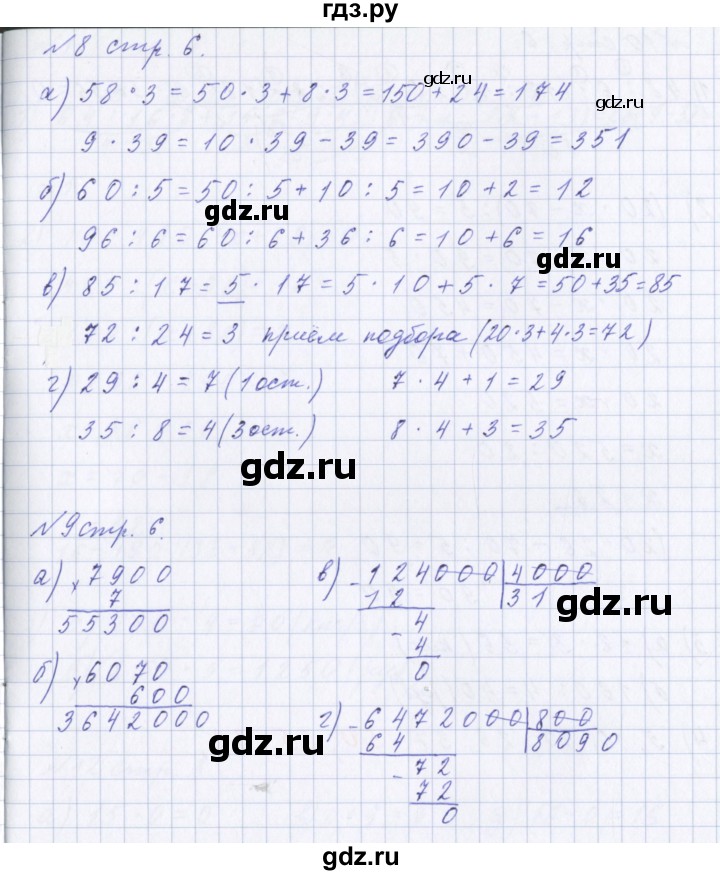 гдз.ру
№8 стр. 6.
gdz.ru
а) 58·3=50·3+8·3=150+24=174
9·39=10·39-39=390-39=351
б) 60:5=50:5+10:5=10+2=12
gdz.ru
96:6=60:6+36:6=10+6=16
gdz.ru
в) 85:17=5·17=5·10+5·7=50+35=85
72:24=3 приём подбора (20·3+4·3=72)
г) 29:4=7 (1 ост.) 7·4+1=29
35:8=4 (3 ост.) 8·4+3=35
gdz.ru
№9 стр. 6.
а) × 7900
7
55300
б) × 6070
600
3642000
в) - 124000 4000
12 31
- 4
4
0
gdz.ru
г) - 6472000 800
64 8090
- 72
72
0
gdz.ru
gdz.ru